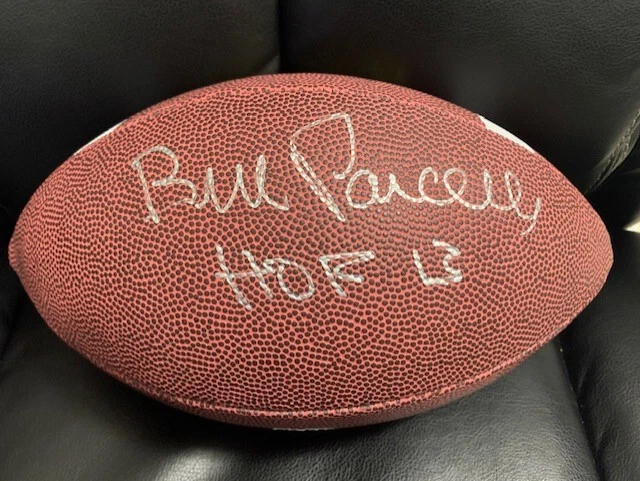 Bill Parcells
HOF 13